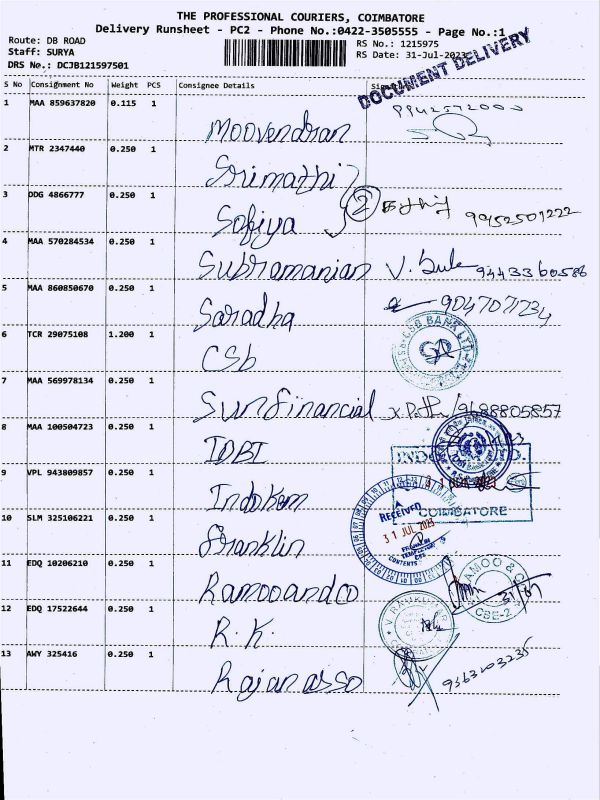 THE PROFESSIONAL COURIERS, COIMBATORE
Delivery Runsheet - PC2 - Phone No.:0422-3505555 - Page No.:1
Route: DB ROAD
Staff: SURYA
DRS No.: DCJB121597501
RS No.: 1215975
RS Date: 31-Jul-2023
DOCUMENT DELIVERY
S No Consignment No Weight PCS Consignee Details
1 MAA 859637820 0.115 1 Moovendran 9942572000
2 MTR 2347440 0.250 1 Srimathi
3 DDG 4866777 0.250 1 Sofiya 2 9952501222
4 MAA 570284534 0.250 1 Subramanian 9443360586
5 MAA 860850670 0.250 1 Saradha
6 TCR 29075108 1.200 1 CSb
CSB BANK LTD
7 MAA 569978134 0.250 1 Sunfinancial 9688805857
8 MAA 100504723 0.250 1 IDBI
9 VPL 943809857 0.250 1 Indokom
COIMBATORE
10 SLM 325106221 0.250 1 Franklin
RECEIVED
31 JUL 2023
CONTENTS
11 EDQ 10206210 0.250 1 Ramooandco
RAMOO & CO
CBE-2
31/07
12 EDQ 17522644 0.250 1 R.K.
13 AWY 325416 0.250 1 Rajan asso 9363203235